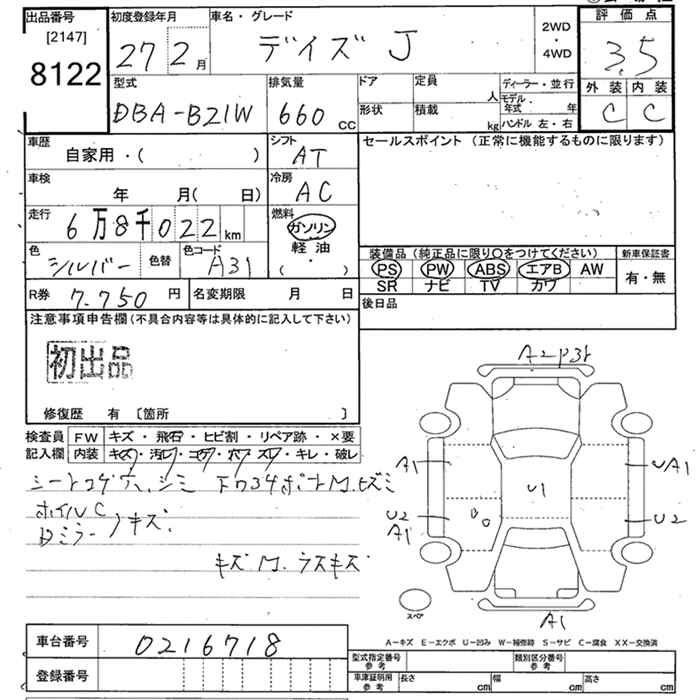 出品番号
[2147]
8122
初度登録年月
27 2 月
車名・グレード
デイズ J
2WD
・
4WD
評価点
3.5
外装 内装
C C
型式
DBA-B21W
排気量
660 cc
ドア
形状
定員 人
積載 kg
ディーラー・並行
モデル年式 年
ハンドル 左・右
車歴
自家用・( )
シフト
AT
車検
年 月( 日)
冷房
AC
走行
6万8千022 km
燃料
ガソリン
軽油
( ・ )
色
シルバー
色替
色コード
A31
セールスポイント (正常に機能するものに限ります)
装備品 (純正品に限り○をつけてください)
PS PW ABS エアB AW
SR ナビ TV カワ
新車保証書
有・無
R券 7.750 円
名変期限 月 日
後日品
注意事項申告欄(不具合内容等は具体的に記入して下さい)
初出品
修復歴 有 〔箇所 〕
検査員
記入欄
FW キズ・飛石・ヒビ割・リペア跡・×要
内装 キズ・汚レ・コゲ・穴・スレ・キレ・破レ
シートコゲ穴、シミ
ホイルC
Dミラー/キズ.
A2P3ﾄ
A1
UA1
U1
U2
A1
U2
A1
スペア
A-キズ E-エクボ U-凹み W-補修跡 S-サビ C-腐食 XX-交換済
車台番号 0216718
登録番号
型式指定番号
参考
類別区分番号
参考
車庫証明用
参考
長さ cm 幅 cm 高さ cm